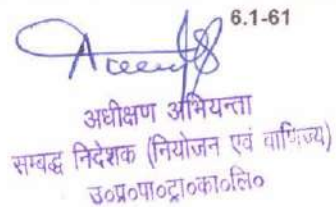 6.1-61
अधीक्षण अभियन्ता
सम्बद्ध निदेशक (नियोजन एवं वाणिज्य)
उ०प्र०पा०ट्रा०का०लि०